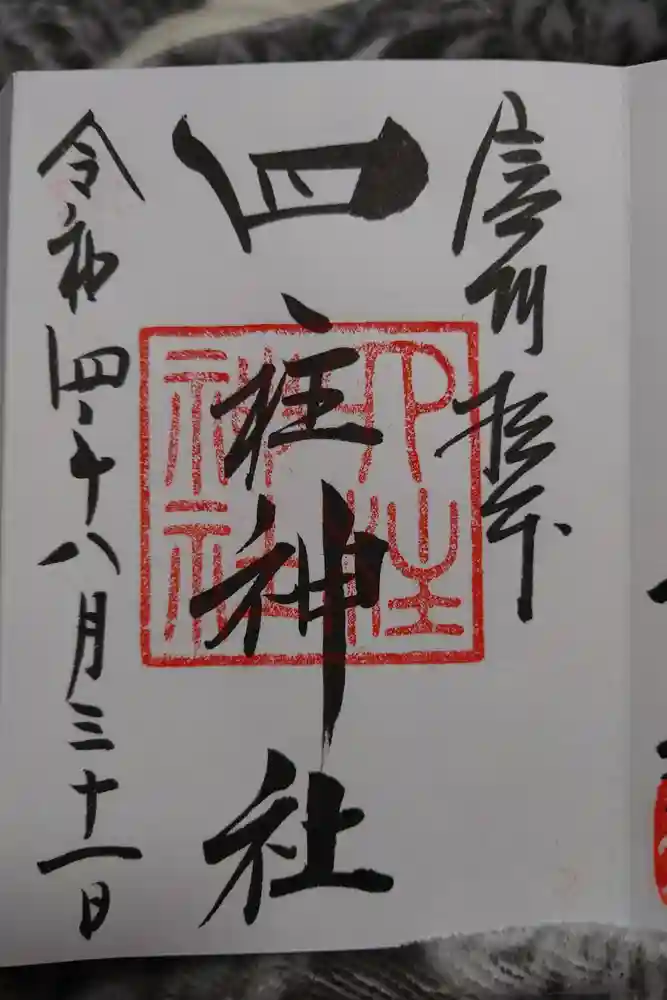 信州松本
四柱神社
四柱
神社
令和四年八月三十一日